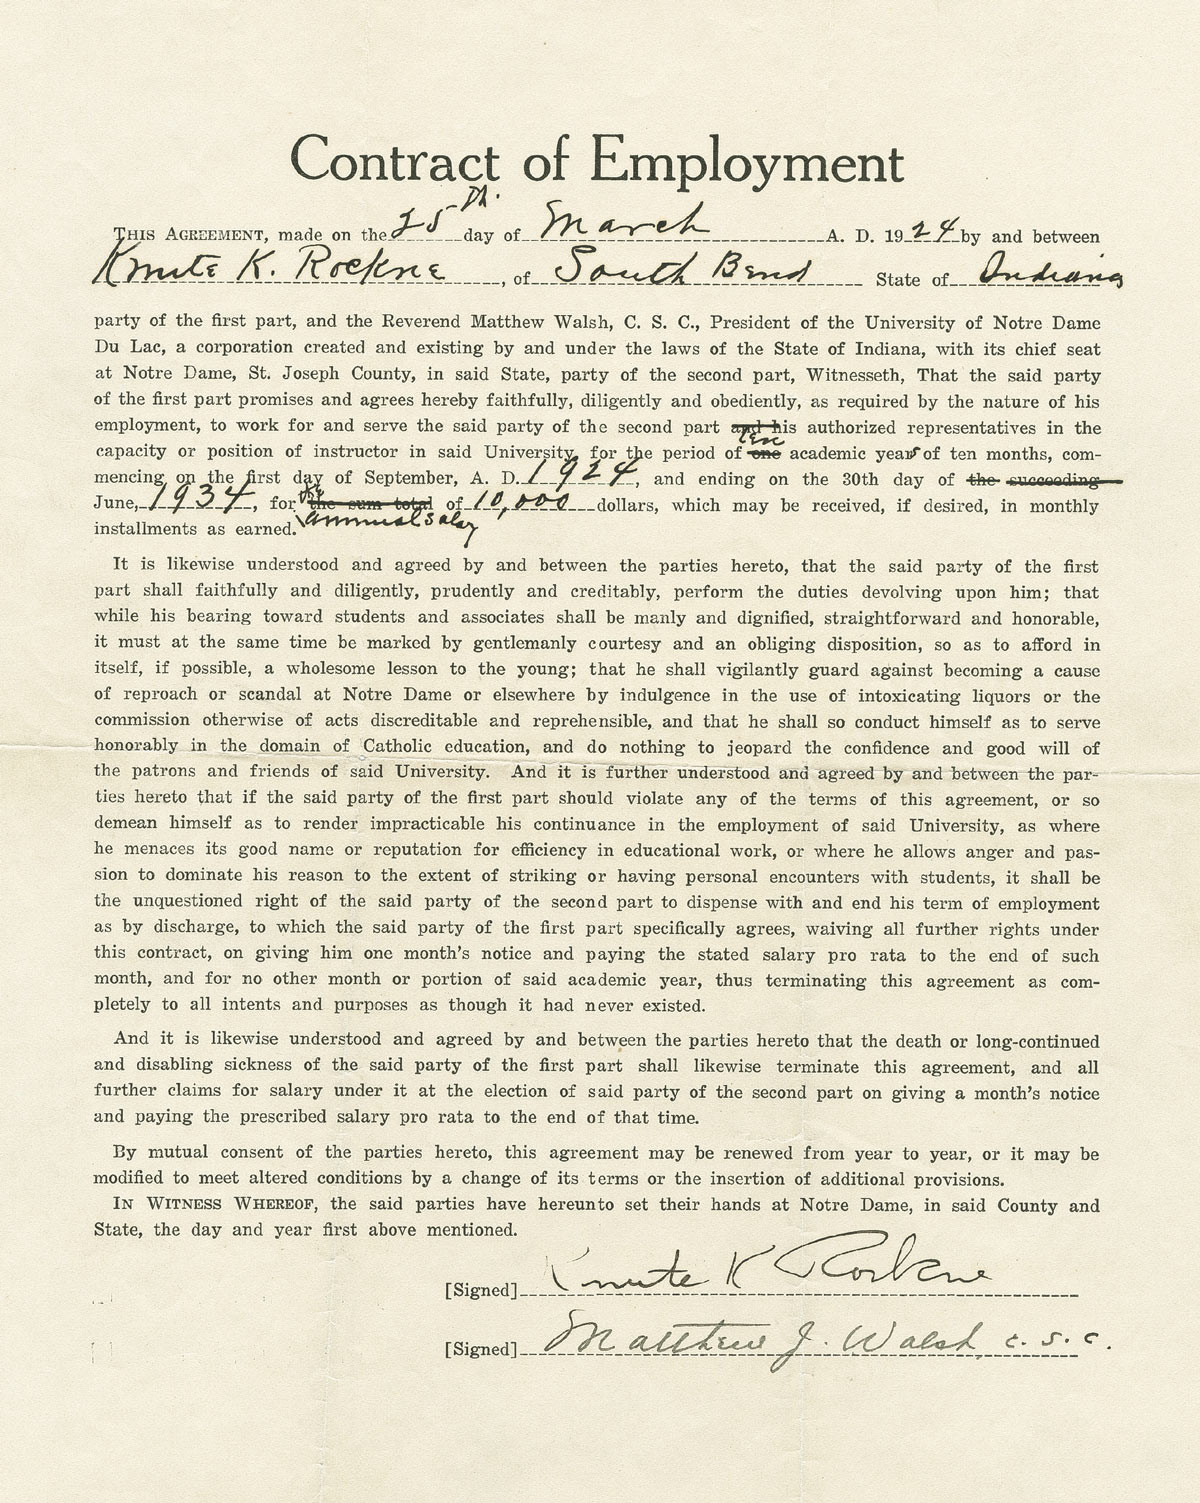 Contract of Employment
THIS AGREEMENT, made on the 25th. day of March A. D. 1924 by and between
Knute K. Rockne, of South Bend State of Indiana
party of the first part, and the Reverend Matthew Walsh, C. S. C., President of the University of Notre Dame
Du Lac, a corporation created and existing by and under the laws of the State of Indiana, with its chief seat
at Notre Dame, St. Joseph County, in said State, party of the second part, Witnesseth, That the said party
of the first part promises and agrees hereby faithfully, diligently and obediently, as required by the nature of his
employment, to work for and serve the said party of the second part and his authorized representatives in the
capacity or position of instructor in said University, for the period of one ten academic years of ten months, com-
mencing on the first day of September, A. D. 1924, and ending on the 30th day of the succeeding
June, 1934, for the sum total the annual salary of 10,000 dollars, which may be received, if desired, in monthly
installments as earned.
It is likewise understood and agreed by and between the parties hereto, that the said party of the first
part shall faithfully and diligently, prudently and creditably, perform the duties devolving upon him; that
while his bearing toward students and associates shall be manly and dignified, straightforward and honorable,
it must at the same time be marked by gentlemanly courtesy and an obliging disposition, so as to afford in
itself, if possible, a wholesome lesson to the young; that he shall vigilantly guard against becoming a cause
of reproach or scandal at Notre Dame or elsewhere by indulgence in the use of intoxicating liquors or the
commission otherwise of acts discreditable and reprehensible, and that he shall so conduct himself as to serve
honorably in the domain of Catholic education, and do nothing to jeopard the confidence and good will of
the patrons and friends of said University. And it is further understood and agreed by and between the par-
ties hereto that if the said party of the first part should violate any of the terms of this agreement, or so
demean himself as to render impracticable his continuance in the employment of said University, as where
he menaces its good name or reputation for efficiency in educational work, or where he allows anger and pas-
sion to dominate his reason to the extent of striking or having personal encounters with students, it shall be
the unquestioned right of the said party of the second part to dispense with and end his term of employment
as by discharge, to which the said party of the first part specifically agrees, waiving all further rights under
this contract, on giving him one month's notice and paying the stated salary pro rata to the end of such
month, and for no other month or portion of said academic year, thus terminating this agreement as com-
pletely to all intents and purposes as though it had never existed.
And it is likewise understood and agreed by and between the parties hereto that the death or long-continued
and disabling sickness of the said party of the first part shall likewise terminate this agreement, and all
further claims for salary under it at the election of said party of the second part on giving a month's notice
and paying the prescribed salary pro rata to the end of that time.
By mutual consent of the parties hereto, this agreement may be renewed from year to year, or it may be
modified to meet altered conditions by a change of its terms or the insertion of additional provisions.
IN WITNESS WHEREOF, the said parties have hereunto set their hands at Notre Dame, in said County and
State, the day and year first above mentioned.
[Signed] Knute K Rockne
[Signed] Matthew J. Walsh, C. S. C.